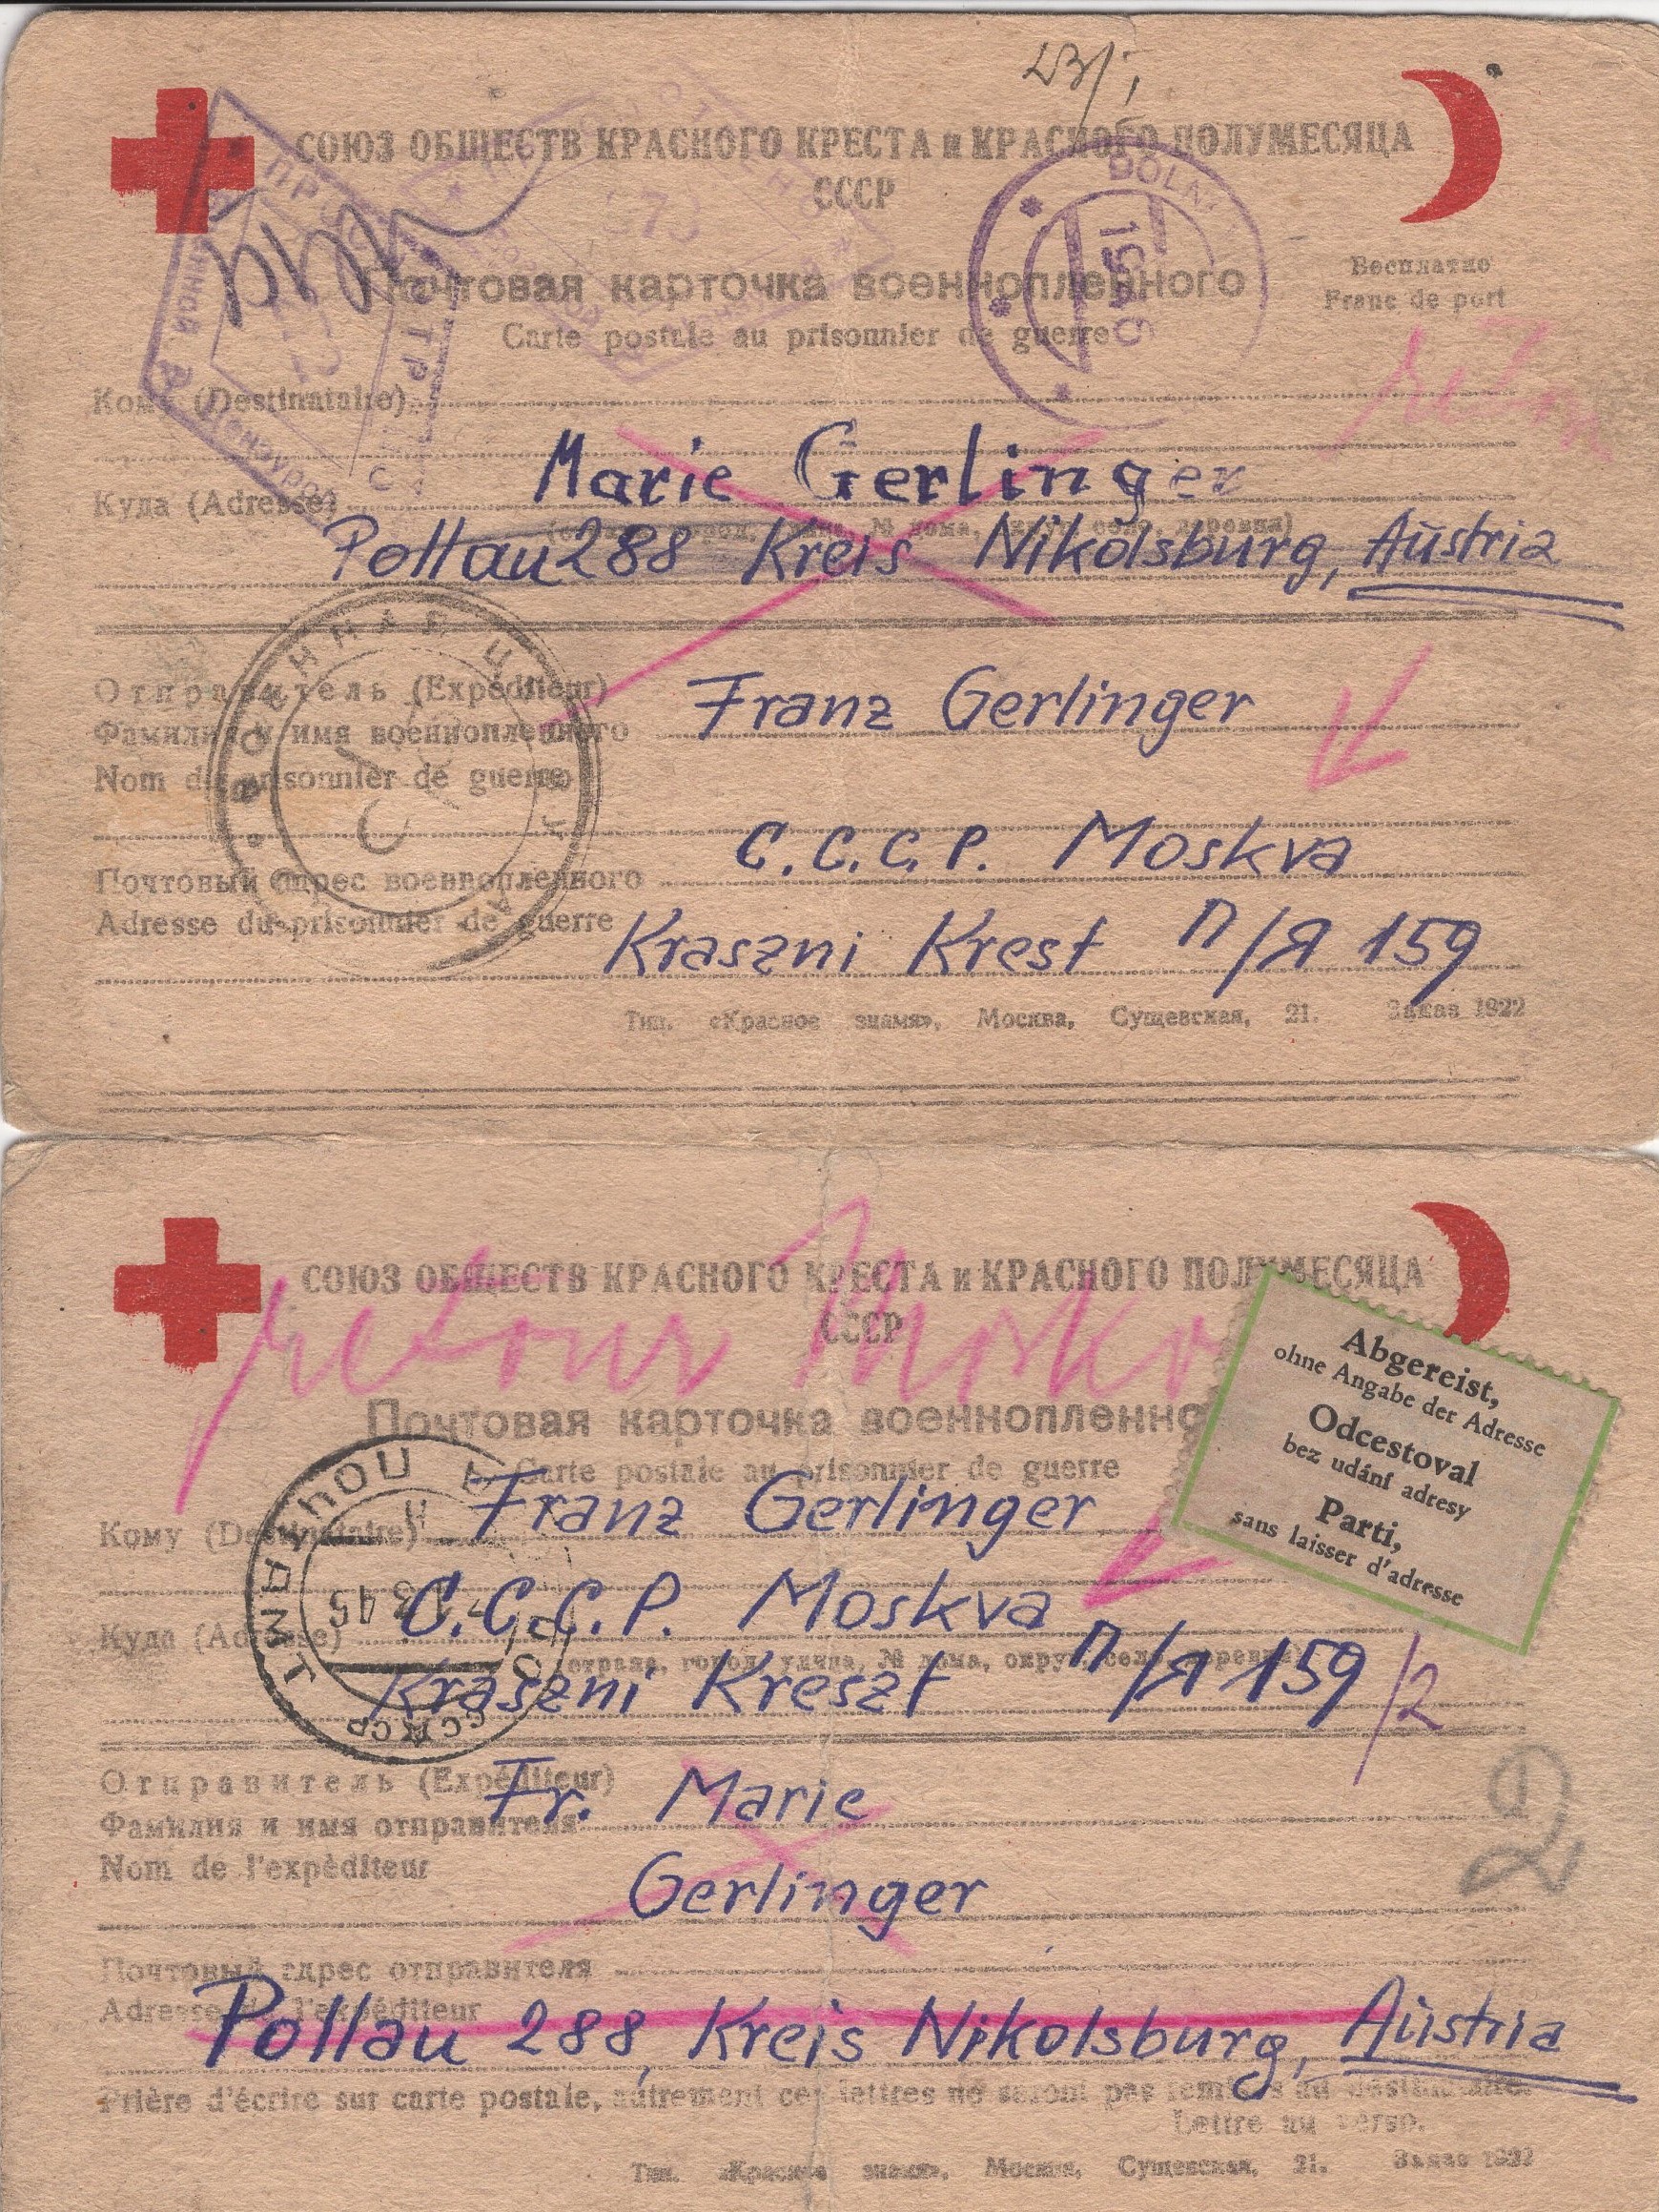 23/I
СОЮЗ ОБЩЕСТВ КРАСНОГО КРЕСТА и КРАСНОГО ПОЛУМЕСЯЦА
СССР
DOLNÍ
1946
273
Почтовая карточка военнопленного
Бесплатно
Carte postale au prisonnier de guerre
Franc de port
retour
Кому (Destinataire)
Marie Gerlinger
Куда (Adresse)
Pollau 288 Kreis Nikolsburg, Aŭstria
Отправитель (Expéditeur)
Franz Gerlinger
Фамилия и имя военнопленного
Nom du prisonnier de guerre
ВОЕННАЯ ЦЕНЗУРА
C.C.C.P. Moskva
Почтовый адрес военнопленного
Adresse du prisonnier de guerre
Kraszni Krest п/я 159
Тип. «Красное знамя», Москва, Сущевская, 21. Заказ 1922
СОЮЗ ОБЩЕСТВ КРАСНОГО КРЕСТА и КРАСНОГО ПОЛУМЕСЯЦА
СССР
retour
Abgereist,
ohne Angabe der Adresse
Odcestoval
bez udání adresy
Parti,
sans laisser d'adresse
Почтовая карточка военнопленно
Carte postale au prisonnier de guerre
Кому (Destinataire)
Franz Gerlinger
C.C.C.P. Moskva
Куда (Adresse)
(страна, город, улица, № дома, округ, село, деревня)
Kraszni Kreszt п/я 159/2
ПОЧТАМТ
45
СССР
Отправитель (Expéditeur)
Fr. Marie
Фамилия и имя отправителя
Nom de l'expéditeur
Gerlinger
Почтовый адрес отправителя
Adresse de l'expéditeur
Pollau 288, Kreis Nikolsburg, Aŭstria
Prière d'écrire sur carte postale, autrement ces lettres ne seront pas remises au destinataire.
Lettre au verso.
Тип. «Красное знамя», Москва, Сущевская, 21. Заказ 1922